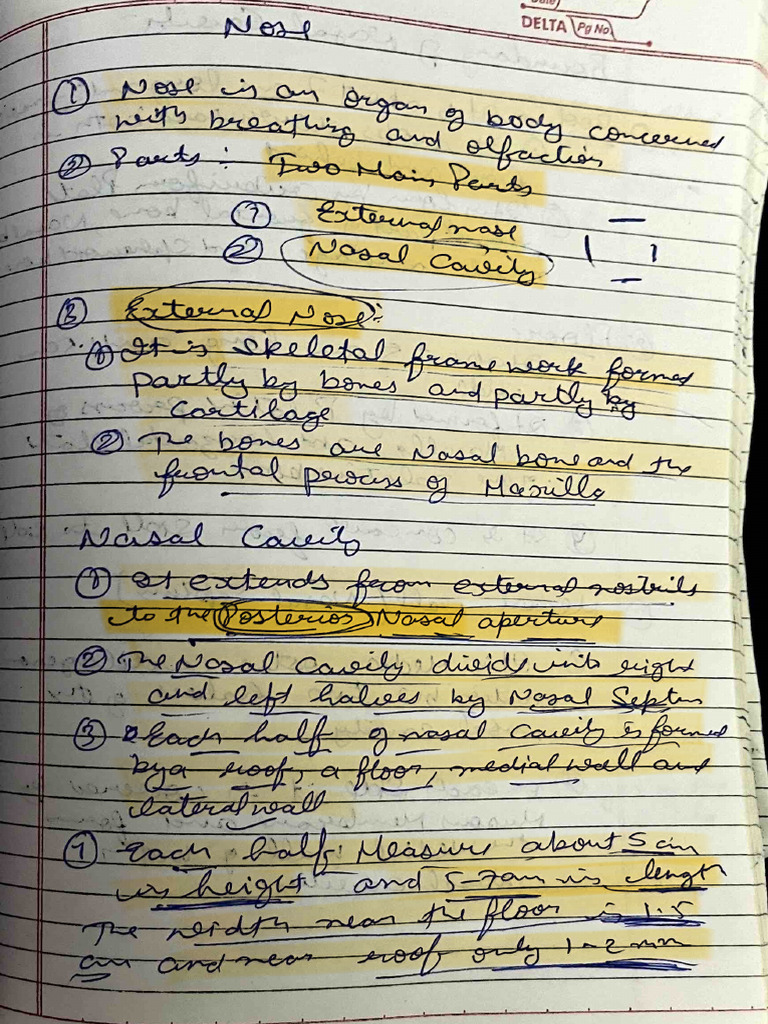 DELTA Pg No.
Nose
① Nose is an organ of body concerned
with breathing and olfaction
② Parts : Two Main Parts
① External nose
② Nasal Cavity
③ External Nose :
① It is skeletal frame work formed
partly by bones and partly by
Cartilage
② The bones are Nasal bone and the
frontal process of Maxilla
Nasal Cavity
① It extends from external nostrils
to the Posterior Nasal aperture
② The Nasal Cavity divids into right
and left halves by Nasal Septum
③ Each half of nasal Cavity is formed
by a roof, a floor, medial wall and
lateral wall
① Each half Measure about 5 cm
in height and 5-7cm in length
The width near the floor is 1.5
cm and near roof only 1-2 mm